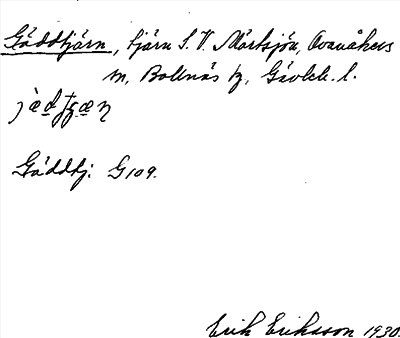 Gäddtjärn, tjärn S. V. Mårtsjön, Ovanåkers
sn, Bollnäs tg, Gävleb. l.
Gäddtj. G 109.
Erik Eriksson 1930.